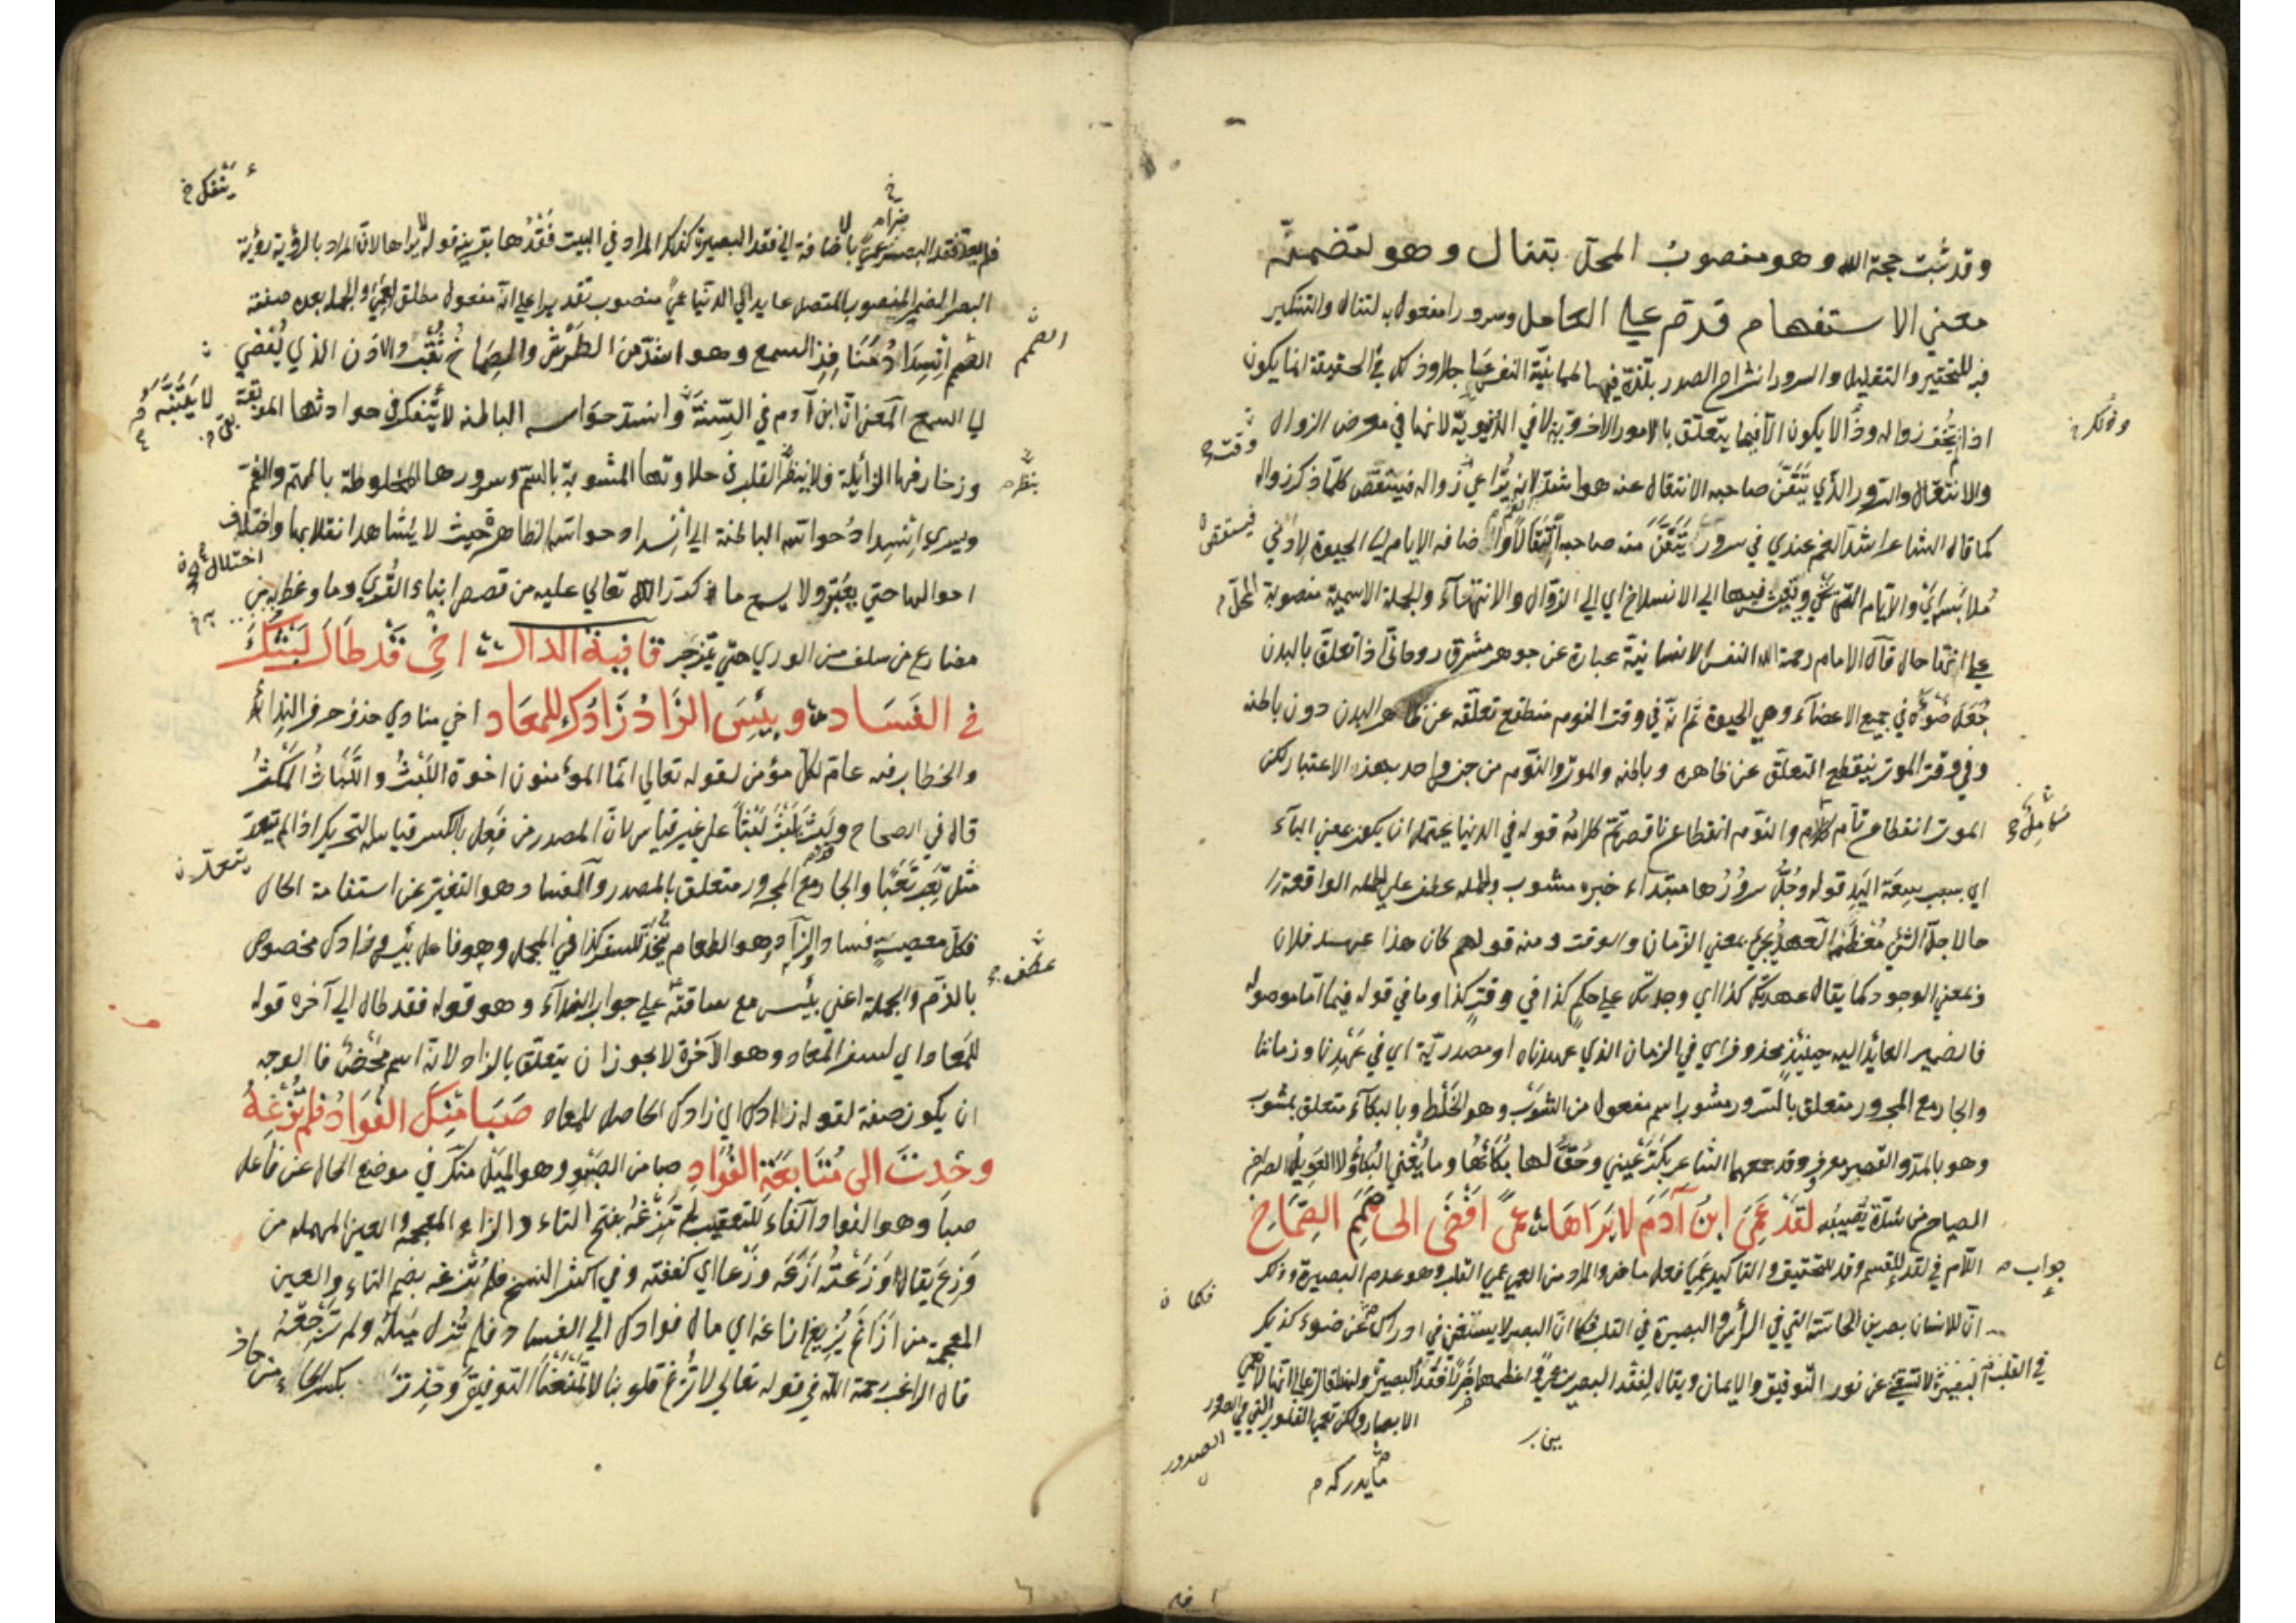 وقد ثبت حجة الله وهو منصوب المحل بتنال وهو لتضمنه
معني الاستفهام قدم علي العامل وسرورا مفعول به لتنال والتنكير
فيه للتحقير والتقليل والسرور انشراح الصدر بلذة فيها طمانينة النفس عاجلا وذلك في الحقيقة انما يكون
اذا لم يخف زواله وذا لا يكون الا فيما يتعلق بالامور الاخروية لا في الدنيوية لانها في معرض الزوال
والانتقال والسرور الذي تيقن صاحبه الانتقال عنه هو اشد لانه يراعي زواله فينتقص كلما ذكر زواله
كما قال الشاعر اشد الغم عندي في سرور تيقن عنه صاحبه انتقالا واضافة الايام الي الحيوة لادني
ملابسة اي والايام التي نحيي ونعيش فيها الي الانسلاخ اي الي الزوال والانتهاء والجملة الاسمية منصوبة المحل
علي انها حال قال الامام رحمة الله النفس الانسانية عبارة عن جوهر مشرق روحاني اذا تعلق بالبدن
جعل ضوءه في جميع الاعضاء وهي الحيوة ثم انه في وقت النوم منقطع تعلقه عن ظاهر البدن دون باطنه
وفي وقت الموت ينقطع التعلق عن ظاهره وباطنه والموت والنوم من جنس واحد بهذا الاعتبار لكن
الموت انقطاع تام كامل والنوم انقطاع ناقص تم كلامه قوله في الدنيا يحتمل ان يكون بمعني الباء
اي بسبب سعة اليد قوله وجل سرورها مبتداء خبره مشوب والجملة عطف علي الجملة الواقعة
حالا جل الشئ معظمه العهد يجئ بمعني الزمان والوقت ومنه قولهم كان هذا عهد فلان
وبمعني الوجود كما يقال عهدتك كذا اي وجدتك علي حكم كذا في وقت كذا وما في قوله فيما اما موصولة
فالضمير العائد اليه حينئذ محذوف اي في الزمان الذي عهدناه او مصدرية اي في عهدنا وزماننا
والجار مع المجرور متعلق بالسرور مشوب اسم مفعول من الشوب وهو الخلط وبالبكاء متعلق بمشوب
وهو بالمد والقصر معروف وقد جمعهما الشاعر بكت عيني وحق لها بكاها وما يغني البكاء ولا العويل الصراخ
الصياح من شدة تصيبه لقد عمي ابن آدم لا يراها عمي افضي الي صمم الصماخ
اللام في لقد للقسم وقد للتحقيق والتاكيد عمي فعل ماض والمراد من العمي عمي القلب وهو عدم البصيرة وذلك
ان للانسان بصرين الحاسة التي في الرأس والبصيرة في القلب فكما ان البصر لا يستغني في ادراك عن ضوء كذلك
في القلب البصيرة لا تستغني عن نور التوفيق والايمان ويقال لفقد البصر عمي واعظمهما ضررا فقد البصيرة ولهذا قال تعالي انها لا تعمي
الابصار ولكن تعمي القلوب التي في الصدور
ما يدركه
جواب
فكما ن
الصدور
فلم يعد فقد البصر عمي بالاضافة الي فقد البصيرة كذلك المراد في البيت فقدها بقرينة قوله لا يراها لان المراد بالرؤية رؤية
البصر الضمير المنصوب المتصل عايد الي الدنيا عمي منصوب تقديرا علي انه مفعول مطلق لعمي والجملة بعده صفته
الصمم انسداد منافذ السمع وهو اشد من الطرش والصماخ ثقب والاذن الذي يفضي
الي السمع المعني ان ابن آدم في السنة وانسد حواسه الباطنة لا يتفكر في حوادثها الموبقة
وزخارفها الزائلة ولا ينظر القلب في حلاوتها المشوبة بالسم وسرورها المخلوطة بالهم والغم
ويسري انسداد حواسه الباطنة الي انسداد حواسه الظاهرة حيث لا يشاهد انقلابها واختلاف
احوالها حتي يعتبر ولا يسمع ما ذكر الله تعالي عليه من قصص ابناء القري وما وعظ به من
مصارع من سلف من الوري حتي يتزجر قافية الدال اخي قد طال لبثك
في الفساد وبئس الزاد زادك للمعاد اخي منادي حذف حرف النداء
والخطاب فيه عام لكل مؤمن لقوله تعالي انما المؤمنون اخوة اللبث واللباث المكث
قال في الصحاح ولبث يلبث لبثا علي غير قياس لان المصدر من فعل بالكسر قياسه التحريك اذا لم يتعد
مثل تعب تعبا والجار مع المجرور متعلق بالمصدر والفساد وهو التغير عن استقامة الحال
فكل معصية فساد والزاد وهو الطعام يتخذ للسفر كذا في المجمل وهو فاعل بئس وزادك مخصوص
بالذم والجملة اعني بئس مع ساقته علي جواب النداء وهو قوله فقد طال الي آخره قوله
للمعاد اي لسفر المعاد وهو الآخرة لا يجوز ان يتعلق بالزاد لانه اسم محض فالوجه
ان يكون صفة لقوله زادك اي زادك الحاصل للمعاد صبا منك الفؤاد فلم تزغه
وحدت الي متابعة الفؤاد صبا من الصبو وهو الميل منك في موضع الحال عن فاعل
صبا وهو الفؤاد والفاء للتعقيب لم تزغه بفتح التاء والزاء المعجمة والعين المهملة من
وزع يقال وزعته ازعه وزعا اي كففته وفي اكثر النسخ فلم تزغه بضم التاء والعين
المعجمة من ازاغ يزيغ ازاغة اي مال فوادك الي الفساد فلم تزل ميله ولم ترجعه
قال الراغب رحمة الله في قوله تعالي لا تزغ قلوبنا لا تمنعنا التوفيق وحدت بكسر الحاء من حاد
الصمم
عطف